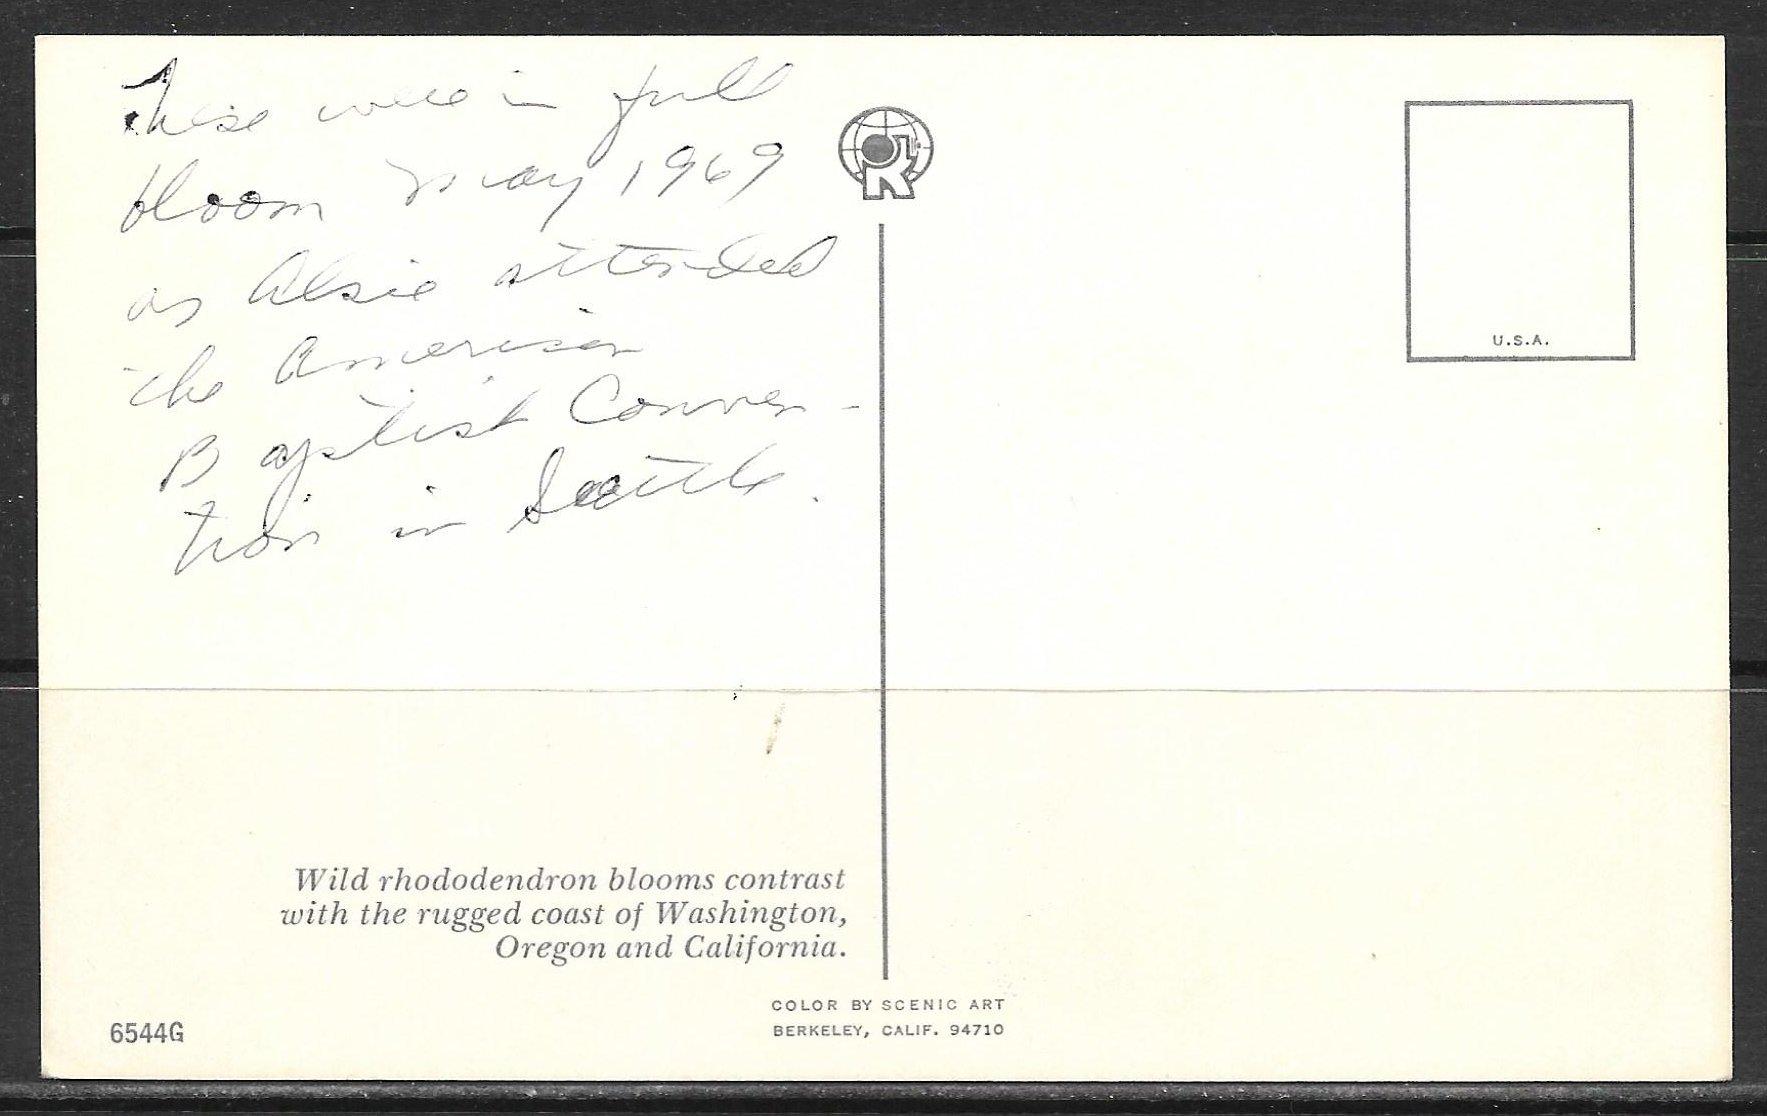 These were in full
bloom May 1969
as Alsie attended
the American
Baptist Conven-
tion in Seattle.
U.S.A.
Wild rhododendron blooms contrast
with the rugged coast of Washington,
Oregon and California.
COLOR BY SCENIC ART
BERKELEY, CALIF. 94710
6544G